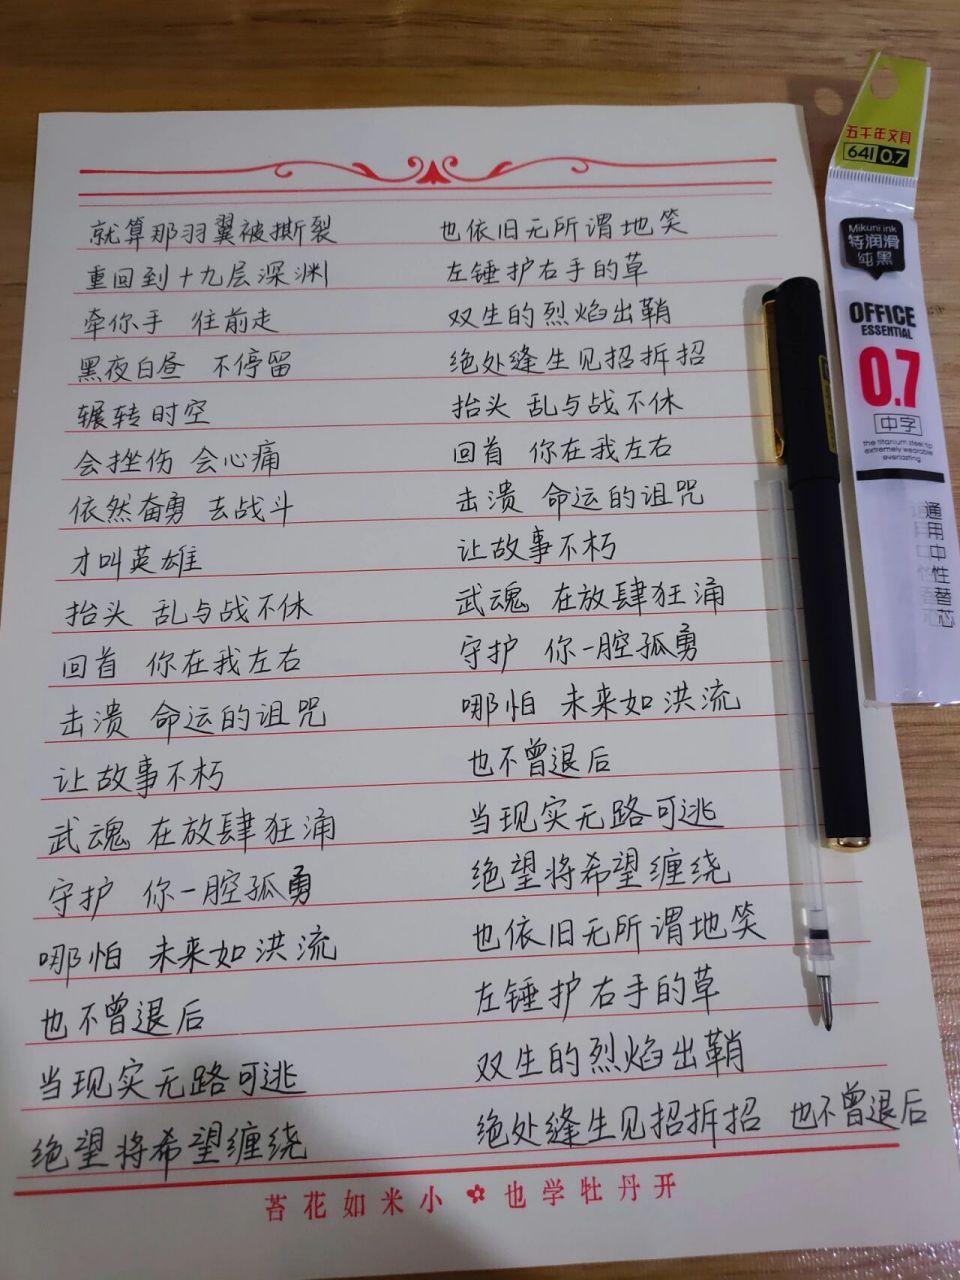 就算那羽翼被撕裂
重回到十九层深渊
牵你手 往前走
黑夜白昼 不停留
辗转时空
会挫伤 会心痛
依然奋勇 去战斗
才叫英雄
抬头 乱与战不休
回首 你在我左右
击溃 命运的诅咒
让故事不朽
武魂 在放肆狂涌
守护 你一腔孤勇
哪怕 未来如洪流
也不曾退后
当现实无路可逃
绝望将希望缠绕
也依旧无所谓地笑
左锤护右手的草
双生的烈焰出鞘
绝处缝生见招拆招
抬头 乱与战不休
回首 你在我左右
击溃 命运的诅咒
让故事不朽
武魂 在放肆狂涌
守护 你一腔孤勇
哪怕 未来如洪流
也不曾退后
当现实无路可逃
绝望将希望缠绕
也依旧无所谓地笑
左锤护右手的草
双生的烈焰出鞘
绝处缝生见招拆招 也不曾退后
苔花如米小 也学牡丹开
五千年文具
641 0.7
Mikuni ink
特润滑
纯黑
OFFICE
ESSENTIAL
0.7
中字
the titanium steel tip
extremely wearable
everlasting
通用中性替芯